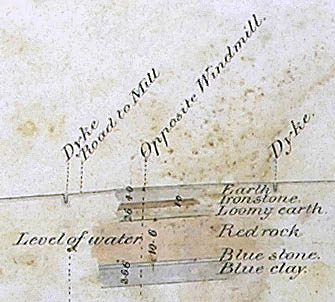 Dyke
Road to Mill
Opposite Windmill.
Dyke.
Earth
Ironstone.
Loomy earth
Red rock
Level of water
Blue stone.
Blue clay.